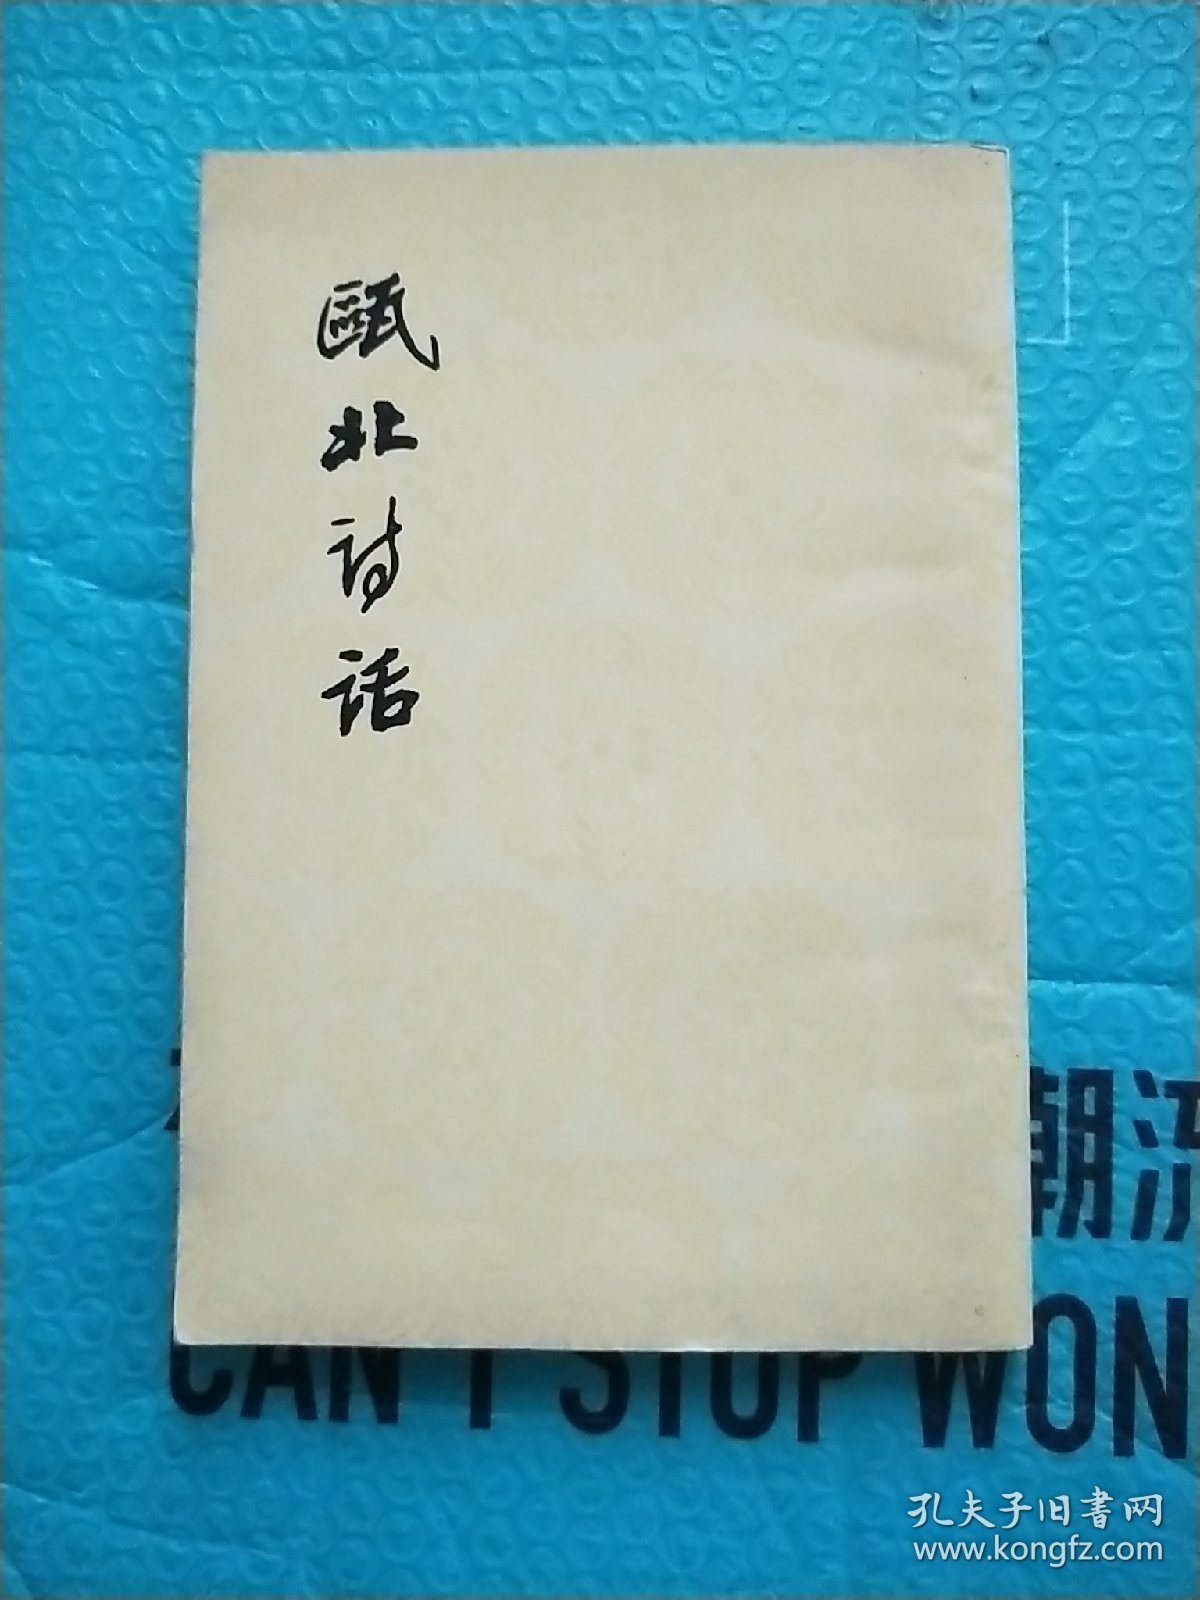 甌北詩話
潮流
CAN'T STOP WON
孔夫子旧书网
www.kongfz.com